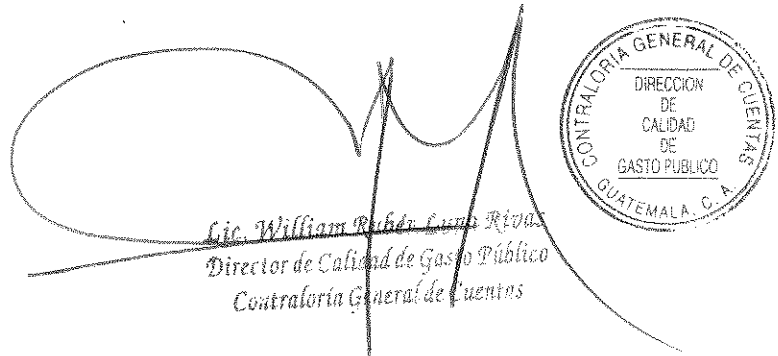 CONTRALORIA GENERAL DE CUENTAS
DIRECCION
DE
CALIDAD
DE
GASTO PUBLICO
GUATEMALA, C. A.
Lic. William Rubén Luna Rivas
Director de Calidad de Gasto Público
Contraloría General de Cuentas